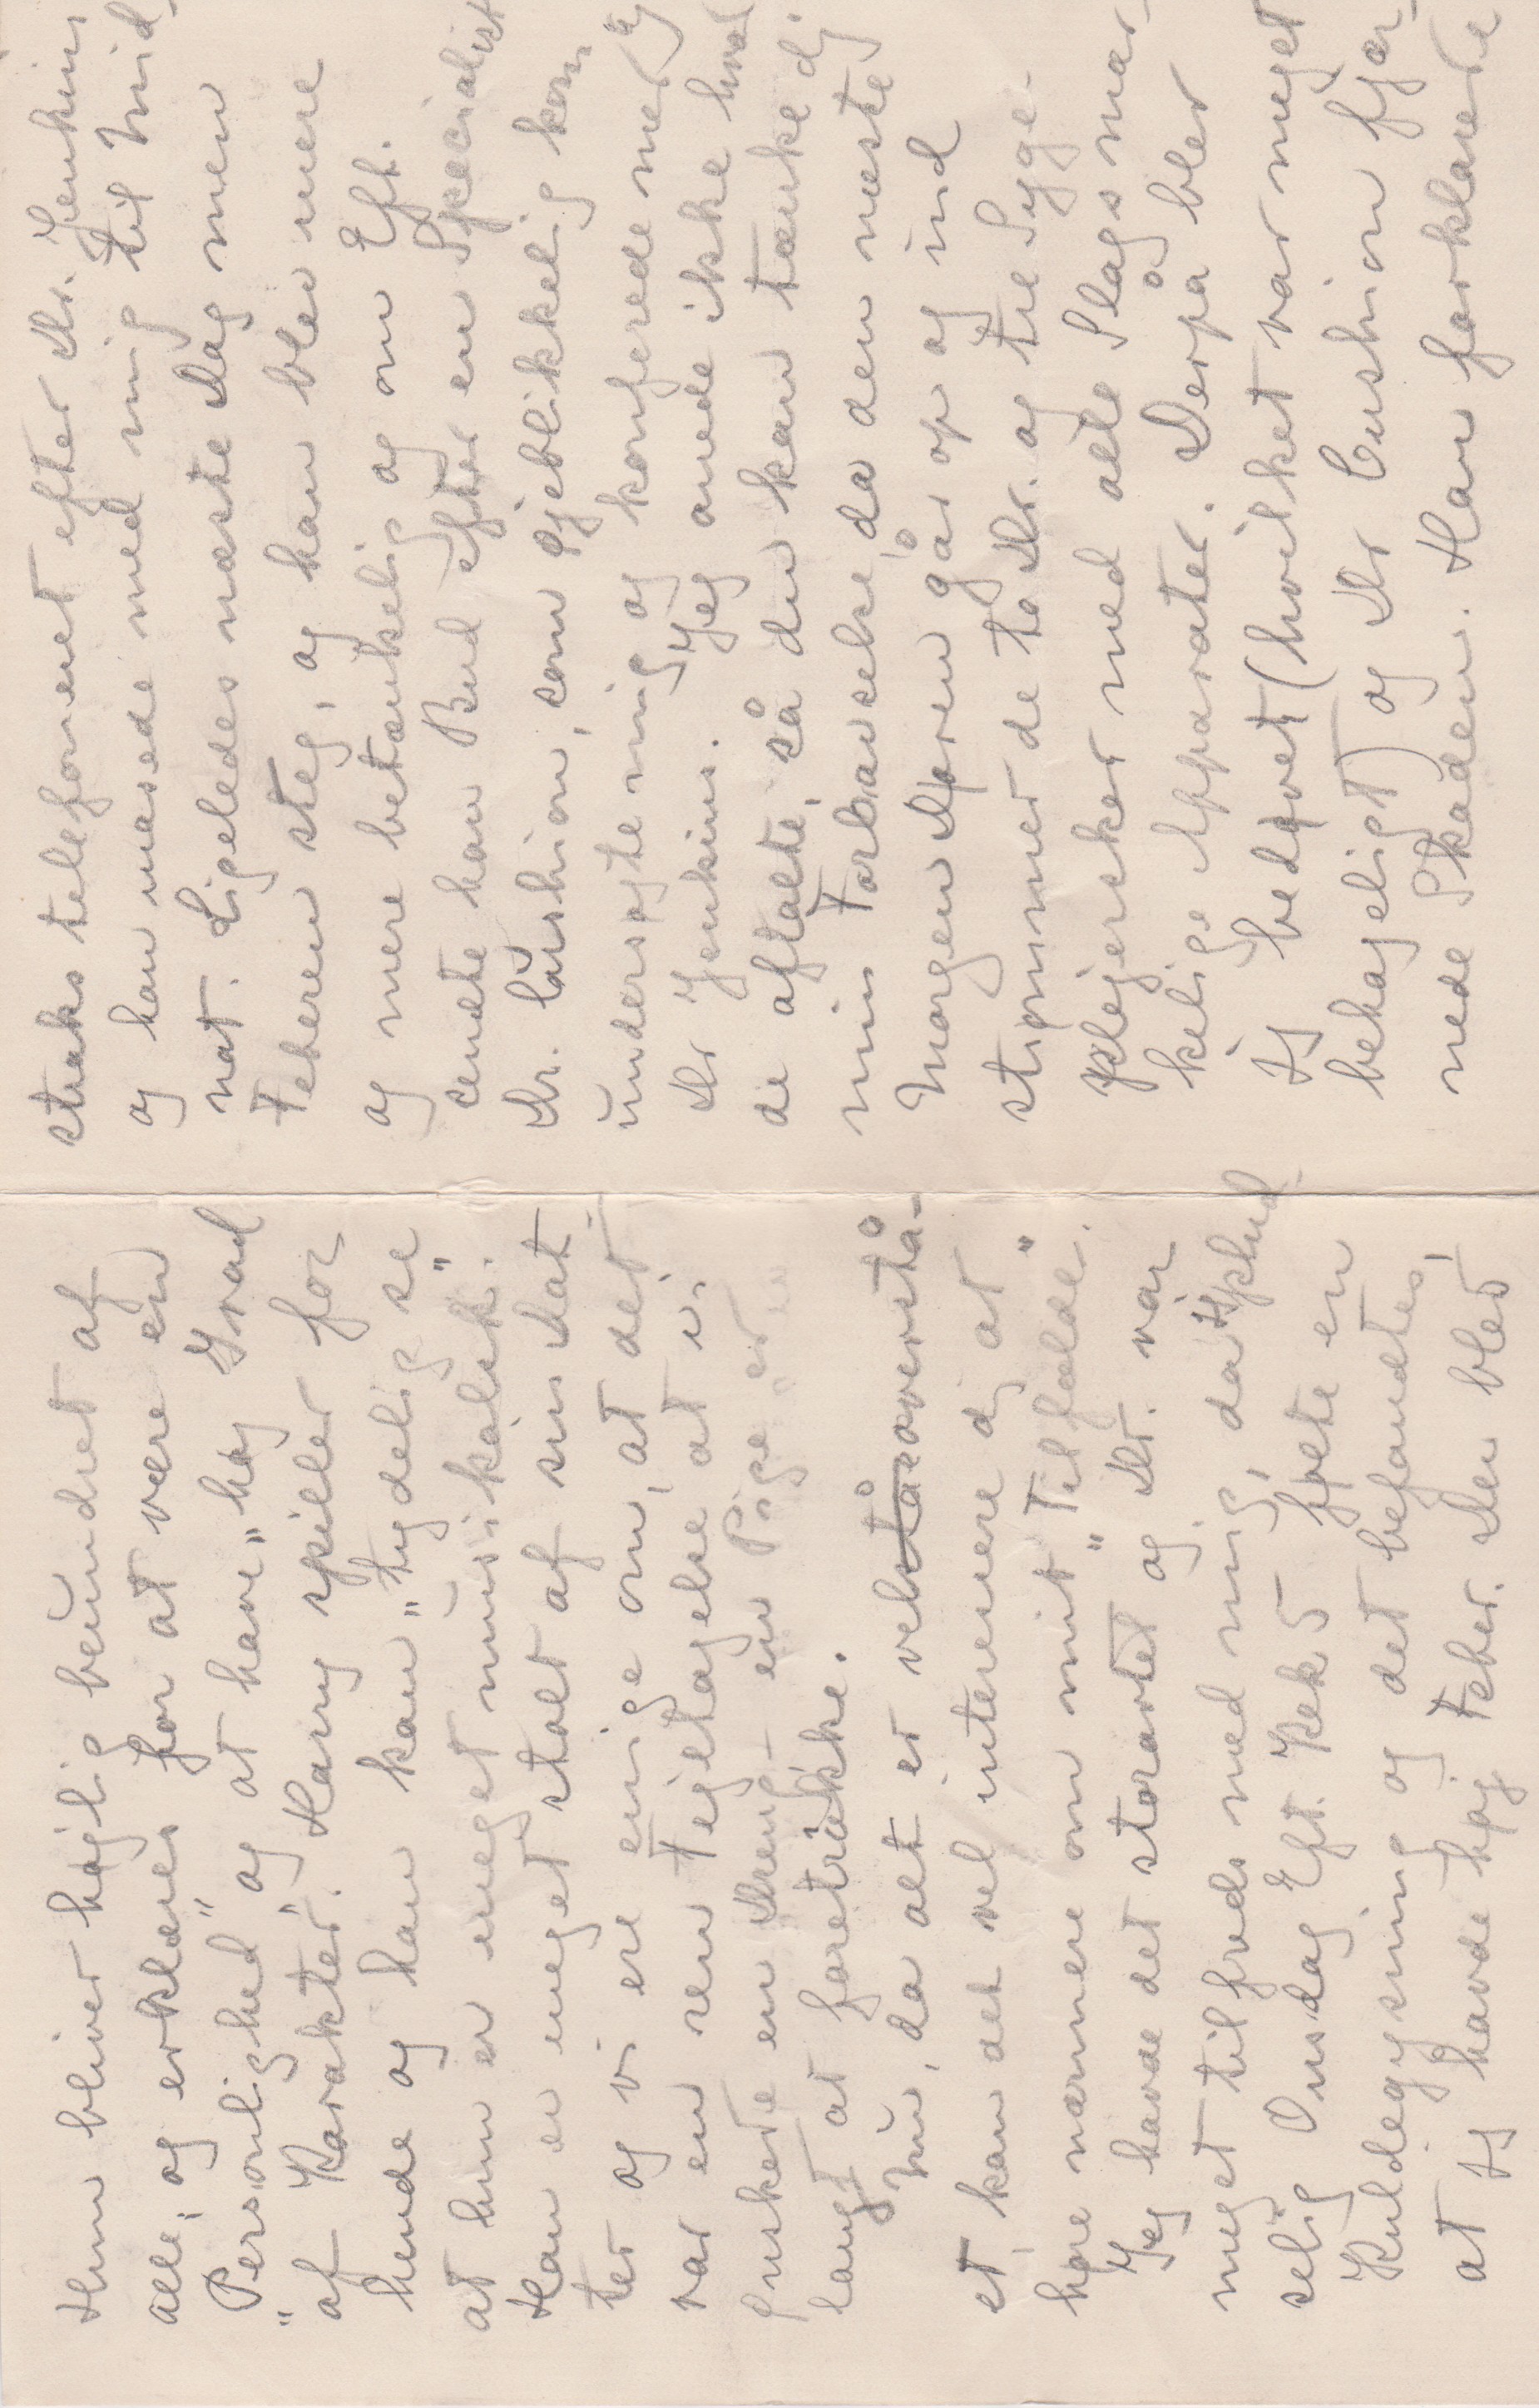 Hun bliver højlig beundret af
alle, og erklæres for at være en
"Personlighed" og at have "høj Grad
af Karakter". Harry spiller for
hende og han kan "tydelig se"
at hun er meget musikalsk.
Han er meget stolt af sin Dat-
ter og vi ere enige om, at det
var en ren Fejltagelse at vi
ønskede en Dreng - en Pige "er"
langt at foretrække.
Nu, da alt er vel overstå-
et, kan det vel interesere dj at
høre nærmere om mit "Tilfælde".
Jeg havde det storartet og Dr. var
meget tilfreds med mig, da jeg plud
selig Onsdag Eft. Kek 5 følte en
Kuldegysning og det befandtes,
at jeg havde høj Feber. Der blev
straks telefoneret efter Dr. Jenkins
og han masede med mig til Mid-
nat. Ligeledes næste Dag men
Feberen steg, og han blev mere
og mere betænkelig og om Eft.
sendte han Bud efter en Specialist
Dr. Cushion, som øjeblikkelig kom
undersøgte mig og konfererede med
Dr Jenkins. Jeg anede ikke hvad
de aftalte, så du kan tænke dj
min Forbavselse, da den næste
Morgen Døren går op og ind
strømmer de to Dr. og tre Syge-
plejersker med alle Slags mær-
kelige Apparater. Derpå blev
jeg bedøvet (hvilket var meget
behageligt) og Dr Cushion fjær-
nede Skaden. Han forklarede